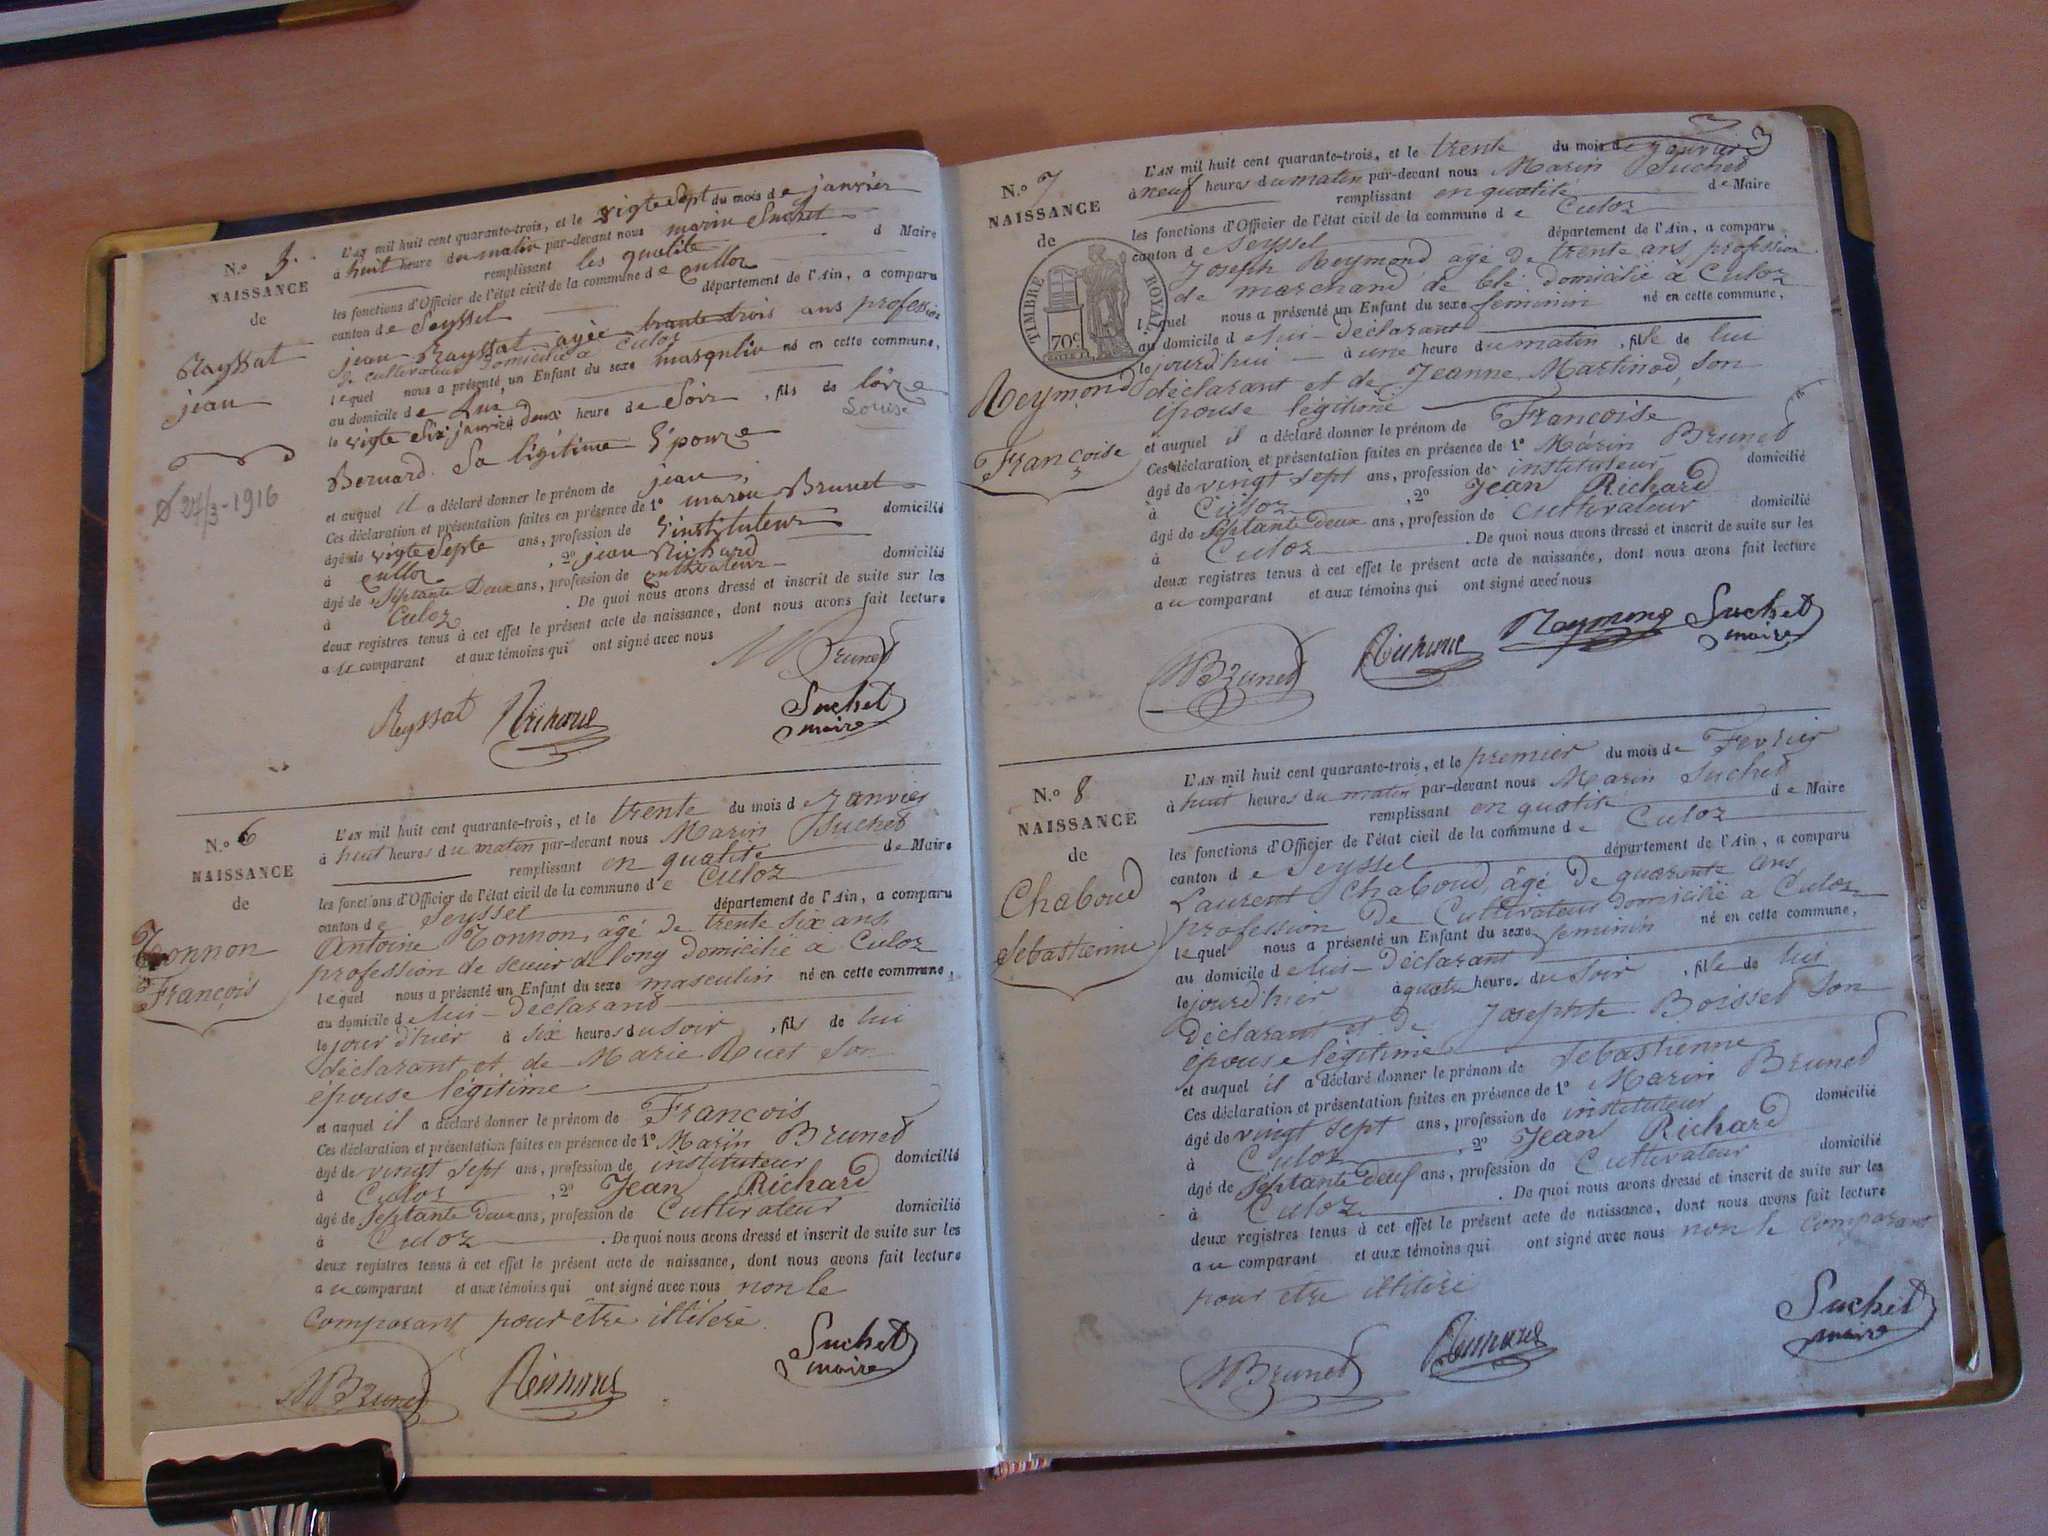 N.o 5.
NAISSANCE
de
Rayssat
jean
27/3-1916
L'AN mil huit cent quarante-trois, et le vigte sept du mois de janvier
à huit heure du matin par-devant nous marin Suchet
remplissant les qualite d Maire
les fonctions d'Officier de l'état civil de la commune de Culloz
canton de Seyssel département de l'Ain, a comparu
jean Rayssat agée trante trois ans profession
de cultivateur domicilié a Culoz
lequel nous a présenté un Enfant du sexe masqulin né en cette commune,
au domicile de Lui
le vigte six janvier deux heure de Soir, fils de loize
Louise
Bernard. Sa ligitime Epouze
et auquel il a déclaré donner le prénom de jean
Ces déclaration et présentation faites en présence de 1o maren Brunet
âgé de vigte Septe ans, profession de instituteur domicilié
à Culloz, 2o jean Richard
âgé de Septante Deux ans, profession de cultivateur domicilié
à Culoz. De quoi nous avons dressé et inscrit de suite sur les
deux registres tenus à cet effet le présent acte de naissance, dont nous avons fait lecture
au comparant et aux témoins qui ont signé avec nous
M Brunet
Reyssat Richard Suchet
maire
N.o 6
NAISSANCE
de
Tonnon
François
L'AN mil huit cent quarante-trois, et le trente du mois de Janvier
à huit heures du matin par-devant nous Marin Suchet
remplissant en qualité de Maire
les fonctions d'Officier de l'état civil de la commune de Culoz
canton de Seyssel département de l'Ain, a comparu
Antoine Tonnon, âgé de trente six ans
profession de scieur de long domicilié a Culoz
lequel nous a présenté un Enfant du sexe masculin né en cette commune,
au domicile de lui-déclarand
le jour d'hier à six heures du soir, fils de lui
déclarant et de Marie Ruet son
épouse légitime
et auquel il a déclaré donner le prénom de François
Ces déclaration et présentation faites en présence de 1o Marin Brunet
âgé de vingt sept ans, profession de instituteur domicilié
à Culoz, 2o Jean Richard
âgé de Septante deux ans, profession de Cultivateur domicilié
à Culoz. De quoi nous avons dressé et inscrit de suite sur les
deux registres tenus à cet effet le présent acte de naissance, dont nous avons fait lecture
au comparant et aux témoins qui ont signé avec nous non le
Comparant pour être illitéré.
M Brunet Richard Suchet
maire
3
N.o 7
NAISSANCE
de
TIMBRE ROYAL
70c
Reymond
Françoise
L'AN mil huit cent quarante-trois, et le trente du mois de janvier
à neuf heures du matin par-devant nous Marin Suchet
remplissant en qualité de Maire
les fonctions d'Officier de l'état civil de la commune de Culoz
canton de Seyssel département de l'Ain, a comparu
Joseph Reymond âgé de trente ans profession
de marchand de blé domicilié à Culoz
lequel nous a présenté un Enfant du sexe feminin né en cette commune,
au domicile de lui-déclarant
le jourd'hui à une heure du matin, fille de lui
déclarant et de Jeanne Martinod, son
épouse légitime
et auquel il a déclaré donner le prénom de Francoise
Ces déclaration et présentation faites en présence de 1o Marin Brunet
âgé de vingt sept ans, profession de instituteur domicilié
à Culoz, 2o Jean Richard
âgé de Septante deux ans, profession de Cultivateur domicilié
à Culoz. De quoi nous avons dressé et inscrit de suite sur les
deux registres tenus à cet effet le présent acte de naissance, dont nous avons fait lecture
au comparant et aux témoins qui ont signé avec nous
M Brunet Richard Reymond Suchet
maire
N.o 8
NAISSANCE
de
Chaboud
Sebastienne
L'AN mil huit cent quarante-trois, et le premier du mois de Fevrier
à huit heures du matin par-devant nous Marin Suchet
remplissant en qualité de Maire
les fonctions d'Officier de l'état civil de la commune de Culoz
canton de Seyssel département de l'Ain, a comparu
Laurent Chaboud, âgé de quarante ans
profession de Cultivateur domicilié a Culoz
lequel nous a présenté un Enfant du sexe feminin né en cette commune,
au domicile de lui-déclarant
le jourd'hier à quatre heures du soir, fille de lui
déclarant et de Josephte Boissed son
épouse légitime
et auquel il a déclaré donner le prénom de Sebastienne
Ces déclaration et présentation faites en présence de 1o Marin Brunet
âgé de vingt sept ans, profession de instituteur domicilié
à Culoz, 2o Jean Richard
âgé de Septante deux ans, profession de Cultivateur domicilié
à Culoz. De quoi nous avons dressé et inscrit de suite sur les
deux registres tenus à cet effet le présent acte de naissance, dont nous avons fait lecture
au comparant et aux témoins qui ont signé avec nous non le comparant
pour être illitéré
M Brunet Richard Suchet
maire